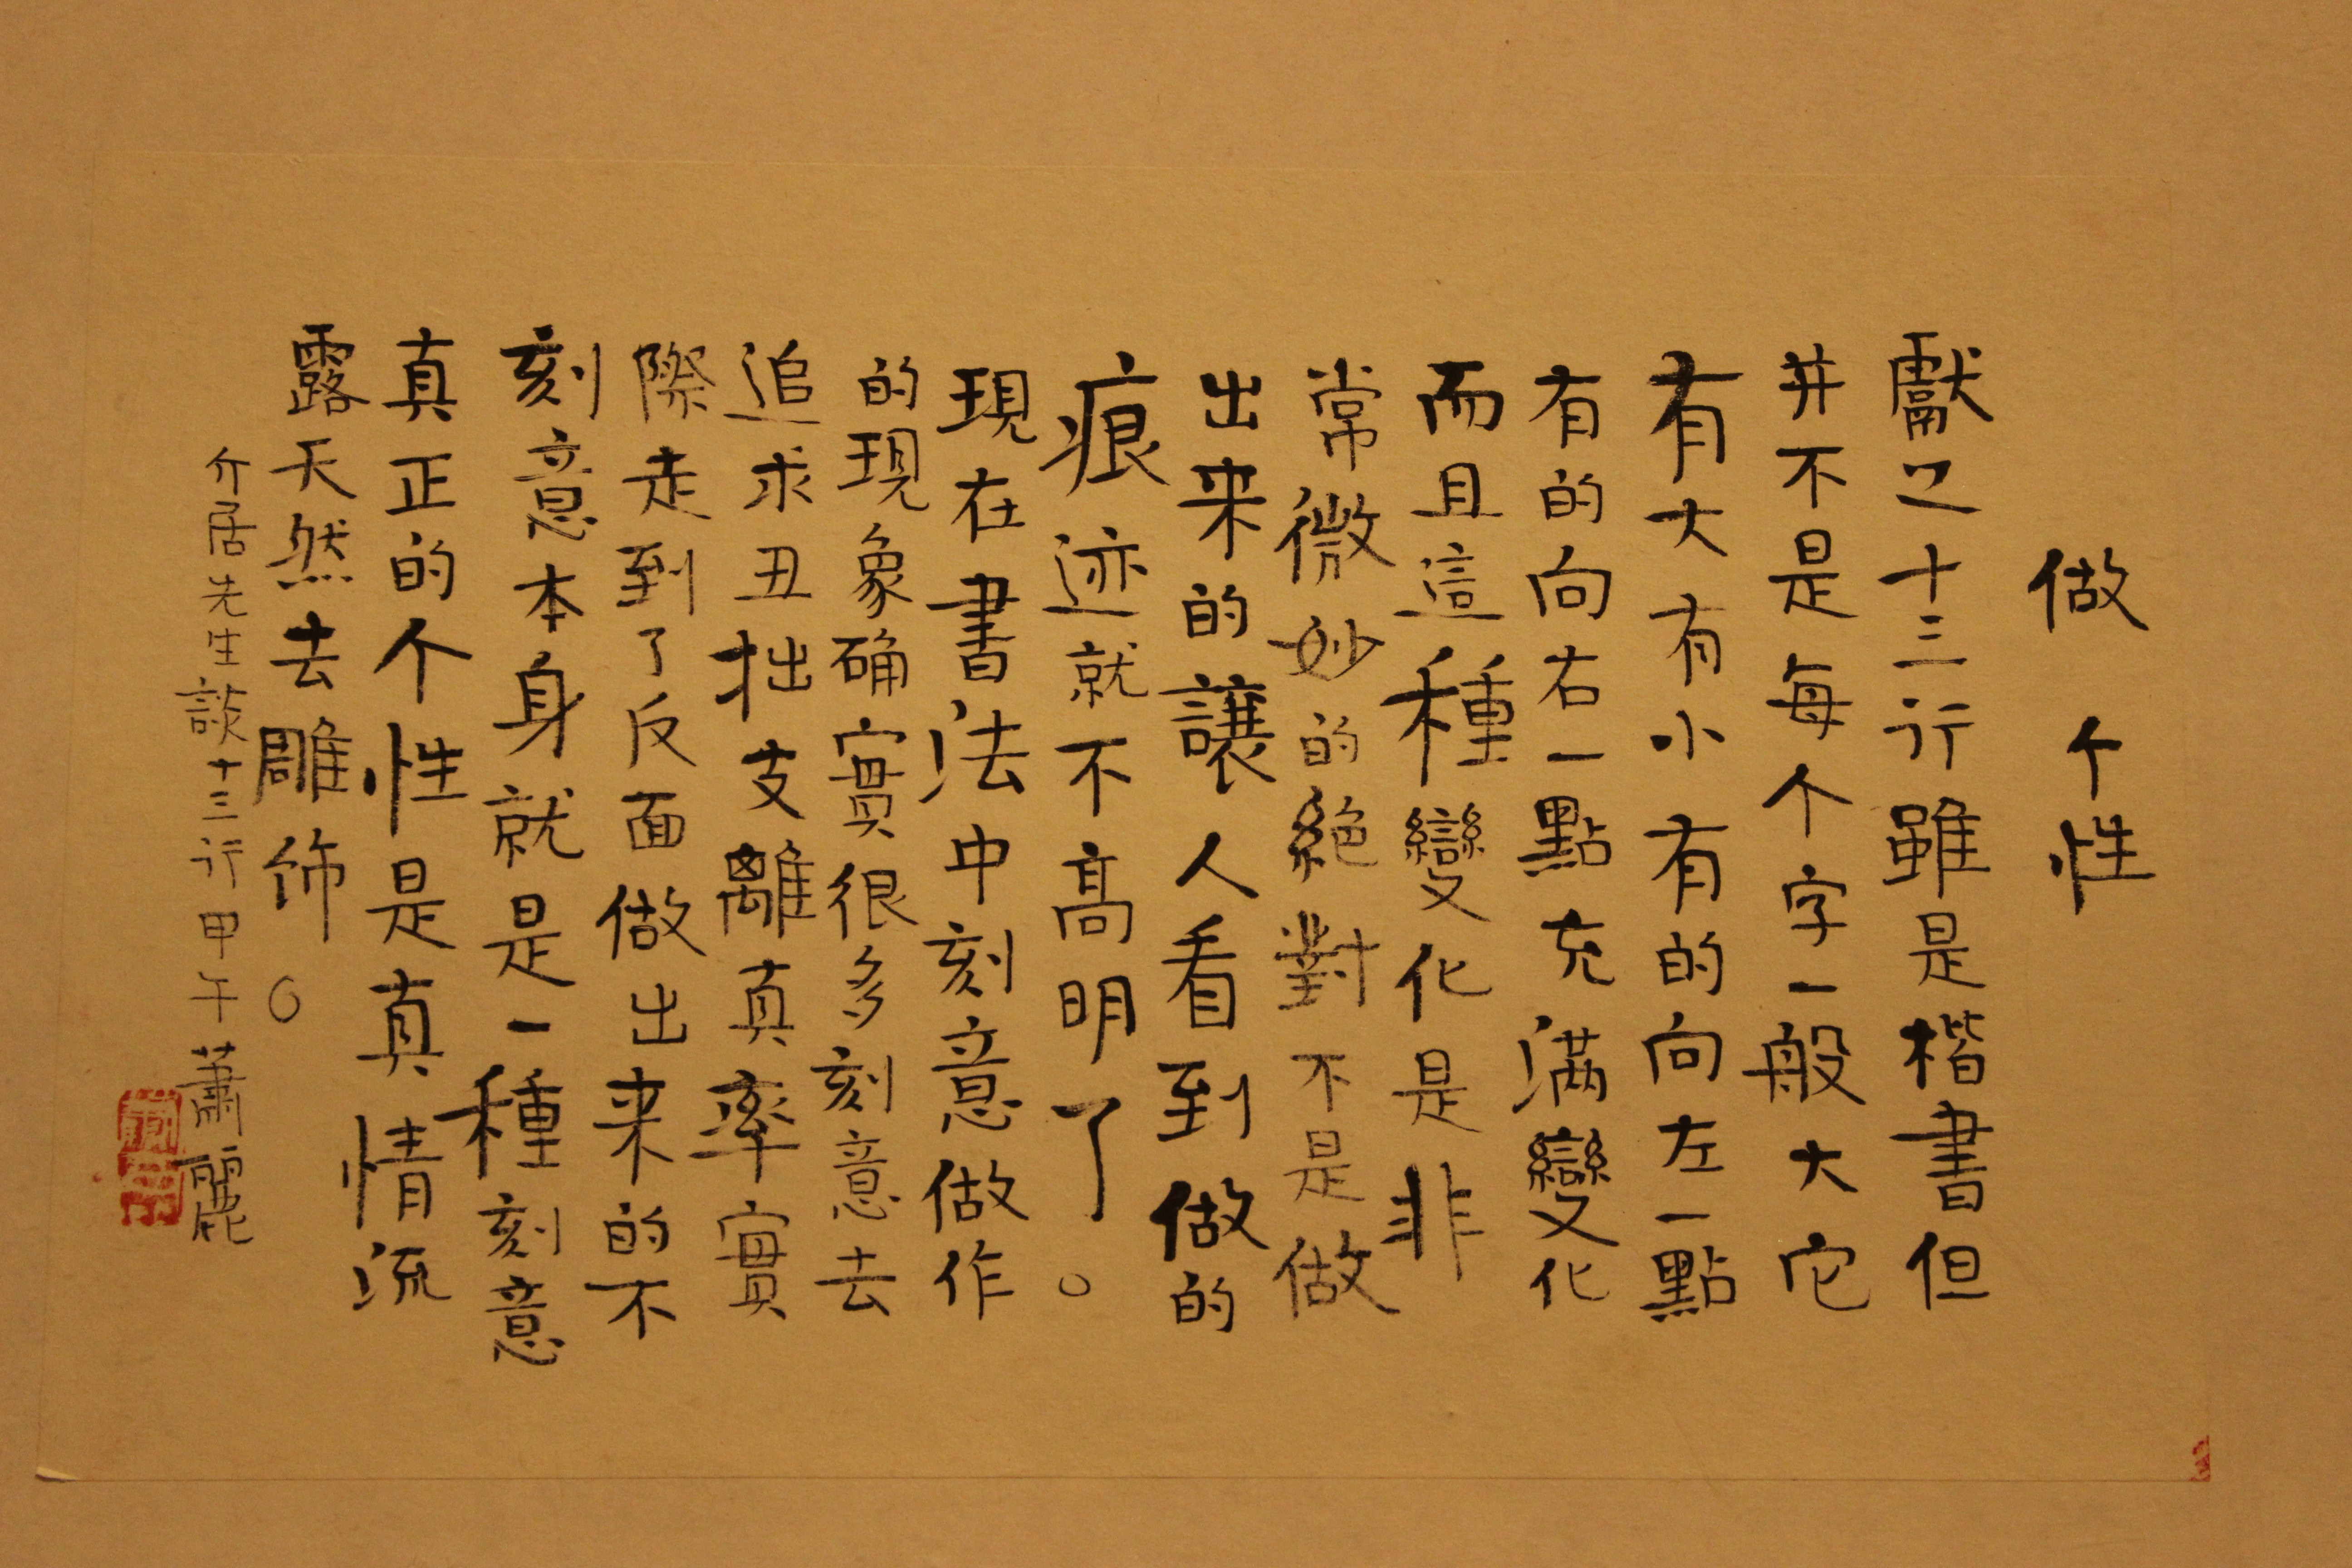 做个性
獻之十三行雖是楷書但
并不是每个字一般大它
有大有小有的向左一點
有的向右一點充滿變化
而且這種變化是非
常微妙的絕對不是做
出来的讓人看到做的
痕迹就不高明了。
現在書法中刻意做作
的現象确實很多刻意去
追求丑拙支離真率實
際走到了反面做出来的不
刻意本身就是一種刻意
真正的个性是真情流
露天然去雕饰。
介居先生談十三行甲午蕭麗